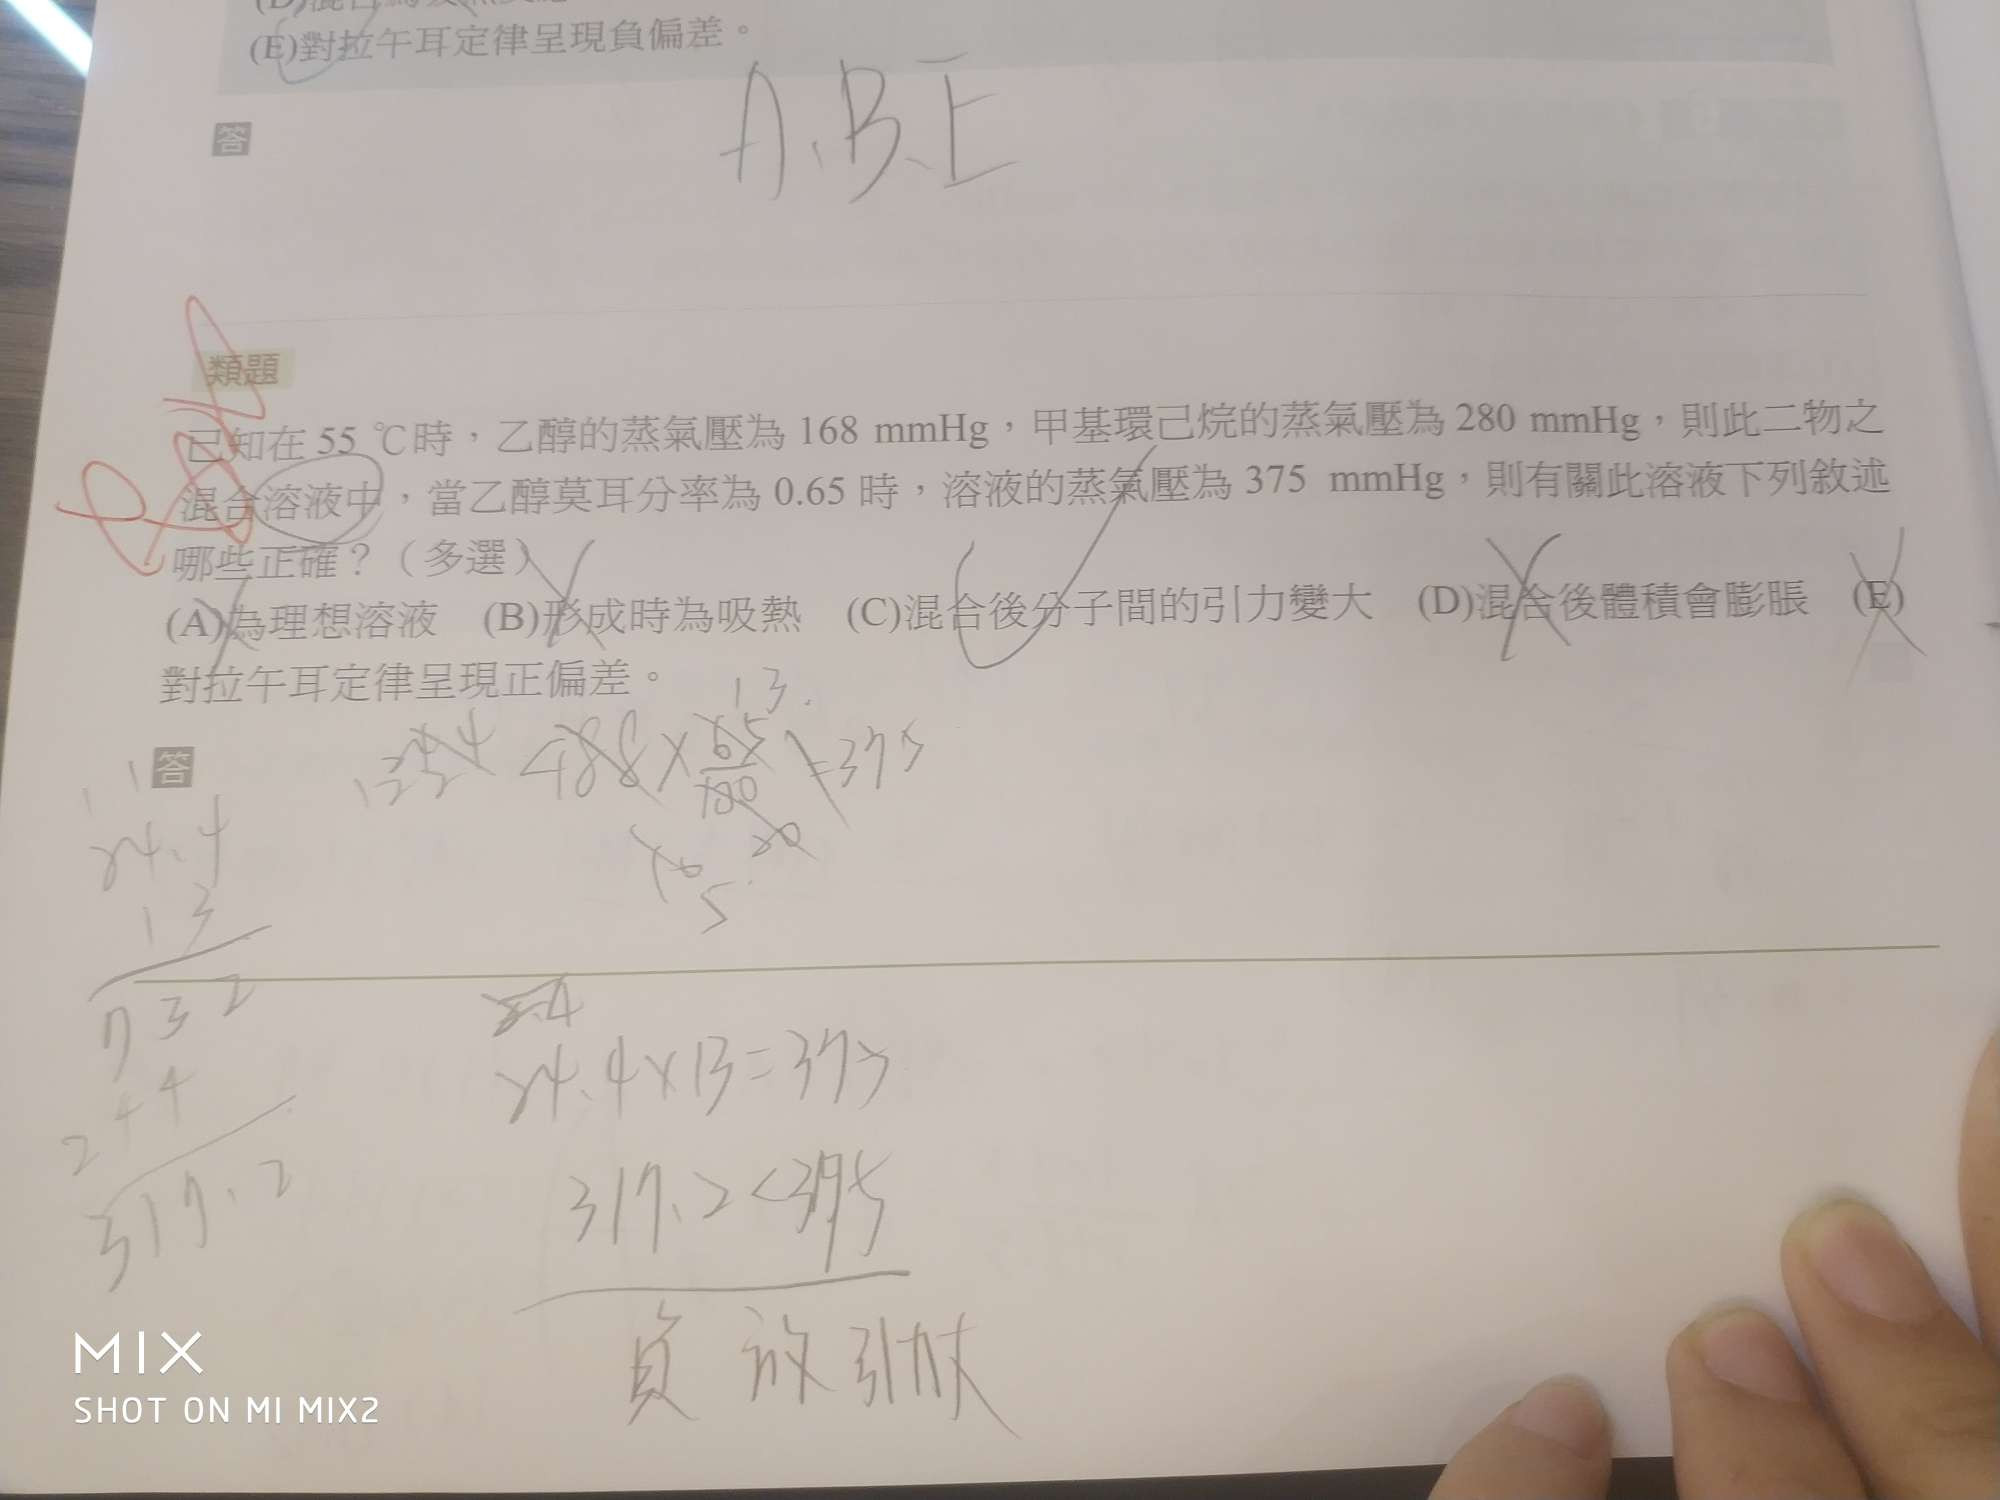 (E)對拉午耳定律呈現負偏差。
答
A、B、E
類題
已知在 55 ℃時，乙醇的蒸氣壓為 168 mmHg，甲基環己烷的蒸氣壓為 280 mmHg，則此二物之
混合溶液中，當乙醇莫耳分率為 0.65 時，溶液的蒸氣壓為 375 mmHg，則有關此溶液下列敘述
哪些正確？（多選）
(A)為理想溶液 (B)形成時為吸熱 (C)混合後分子間的引力變大 (D)混合後體積會膨脹 (E)
對拉午耳定律呈現正偏差。
答
13
488×65/100=375
20
5
24.4
13
732
244
317.2
24.4×13=375
317.2<375
負 放 引力大
MIX
SHOT ON MI MIX2